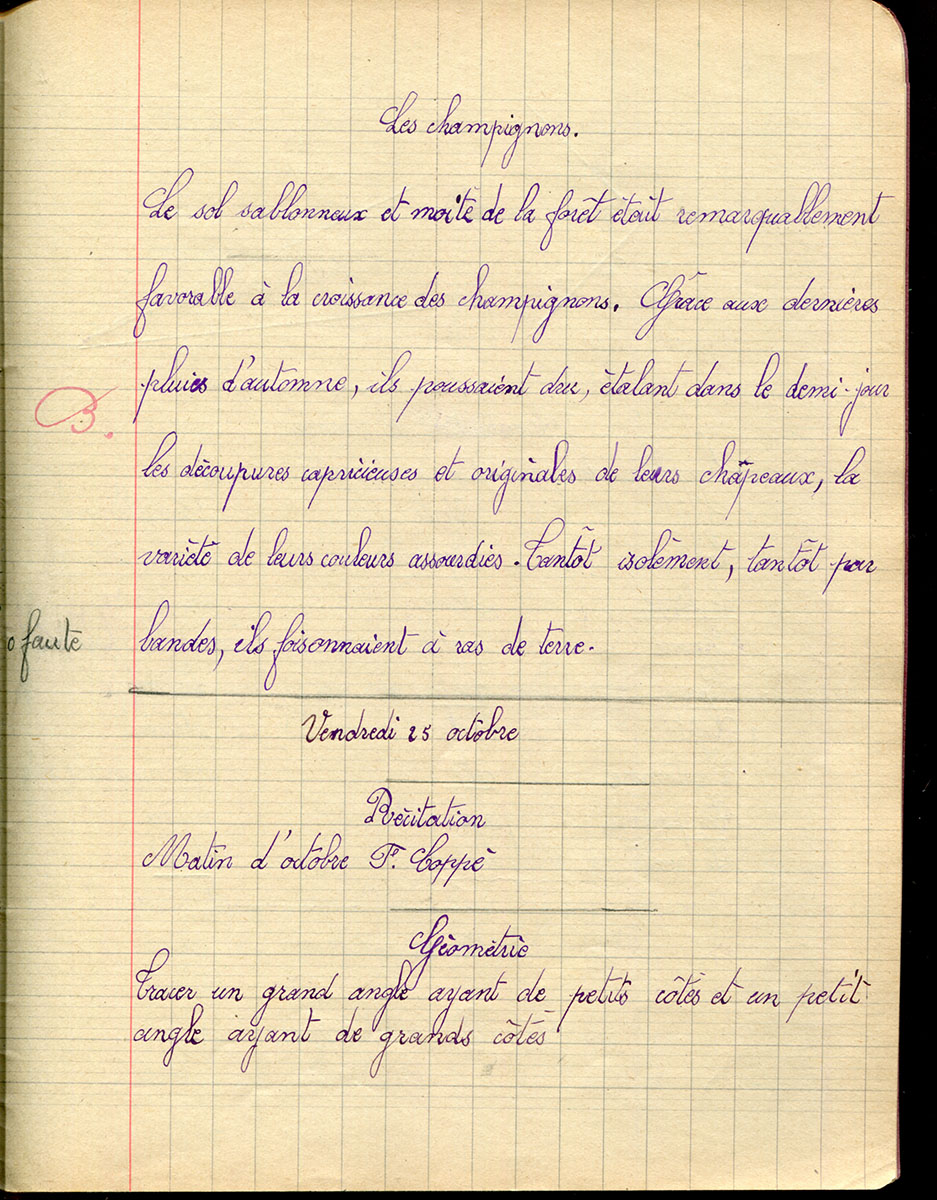 Les champignons.
Le sol sablonneux et moite de la forêt était remarquablement
favorable à la croissance des champignons. Grâce aux dernières
pluies d'automne, ils poussaient dru, étalant dans le demi-jour
B.
les découpures capricieuses et originales de leurs châpeaux, la
variété de leurs couleurs assourdies. Tantôt isolément, tantôt par
0 faute
bandes, ils foisonnaient à ras de terre.
Vendredi 25 octobre
Récitation
Matin d'octobre F. Coppé
Géométrie
Tracer un grand angle ayant de petits côtés et un petit
angle ayant de grands côtés